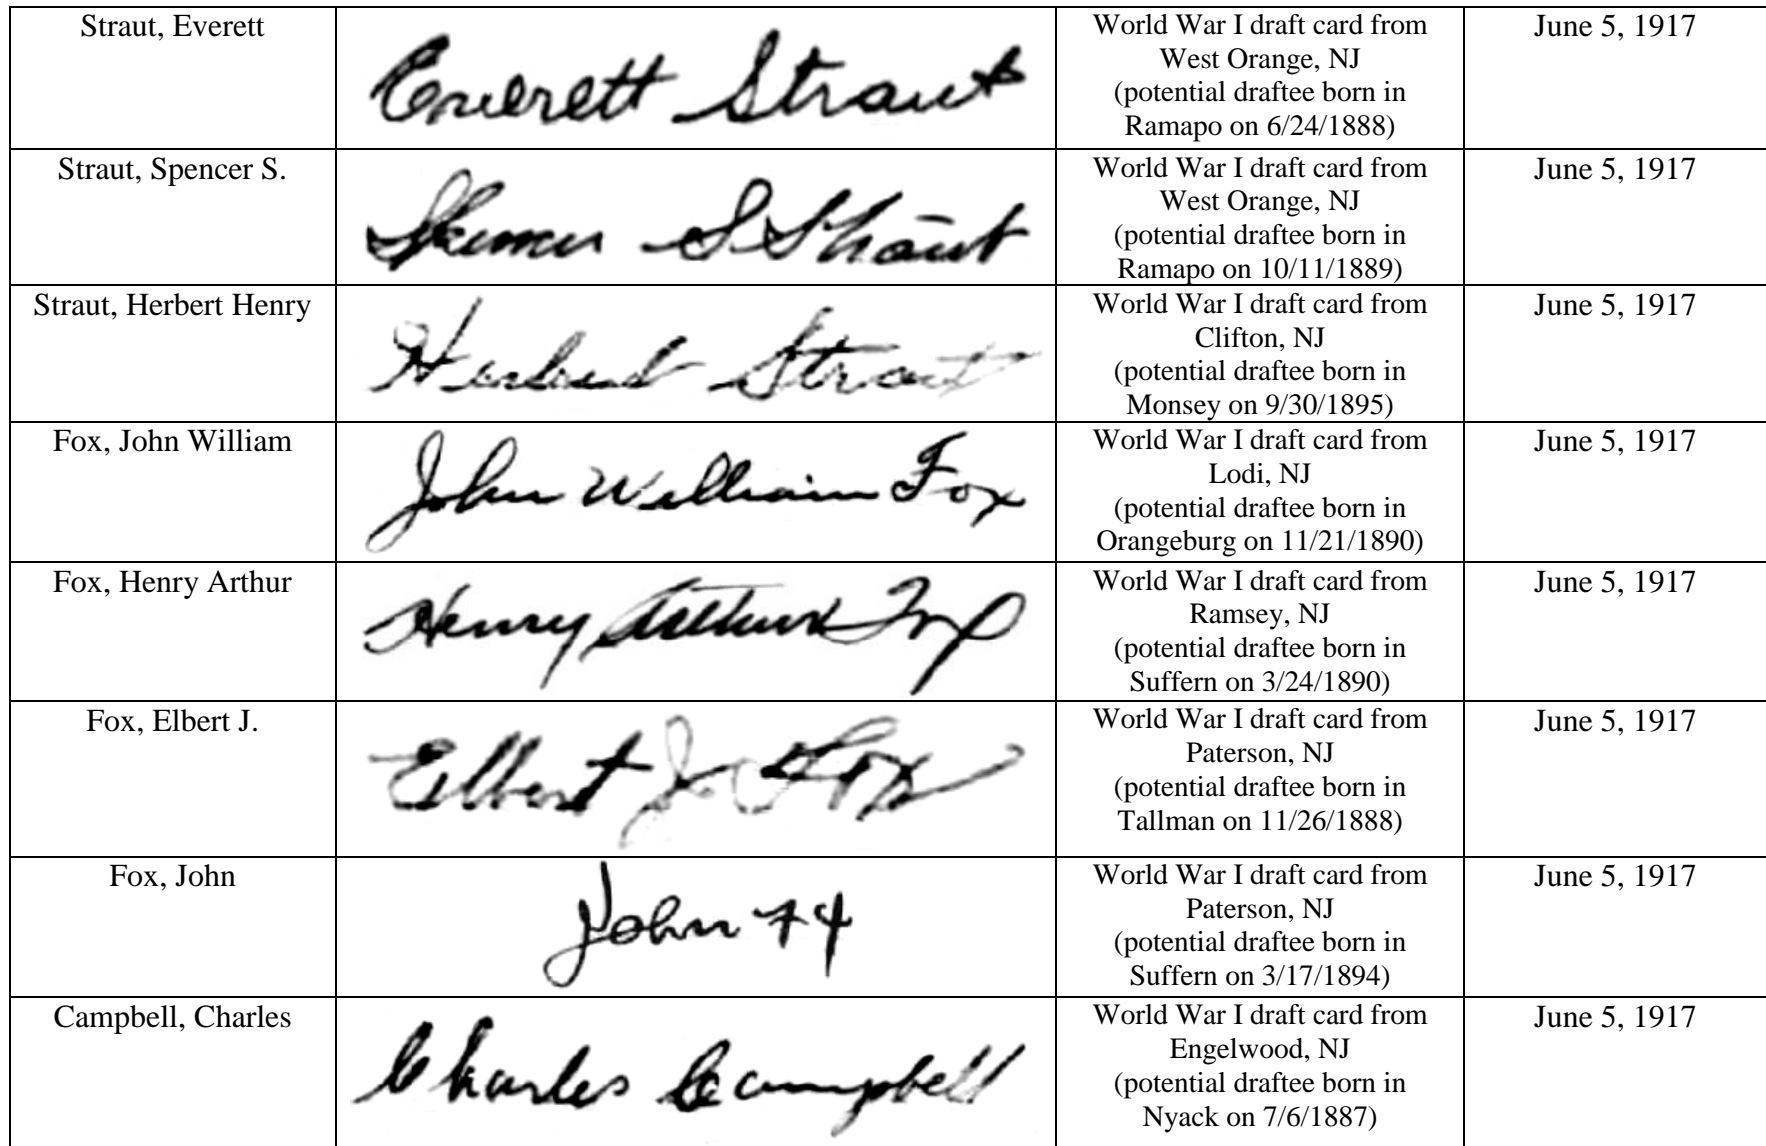 Straut, Everett
Everett Straut
World War I draft card from
West Orange, NJ
(potential draftee born in
Ramapo on 6/24/1888)
June 5, 1917
Straut, Spencer S.
S Straut
World War I draft card from
West Orange, NJ
(potential draftee born in
Ramapo on 10/11/1889)
June 5, 1917
Straut, Herbert Henry
Herbert Straut
World War I draft card from
Clifton, NJ
(potential draftee born in
Monsey on 9/30/1895)
June 5, 1917
Fox, John William
John William Fox
World War I draft card from
Lodi, NJ
(potential draftee born in
Orangeburg on 11/21/1890)
June 5, 1917
Fox, Henry Arthur
Henry Arthur Fox
World War I draft card from
Ramsey, NJ
(potential draftee born in
Suffern on 3/24/1890)
June 5, 1917
Fox, Elbert J.
Elbert J. Fox
World War I draft card from
Paterson, NJ
(potential draftee born in
Tallman on 11/26/1888)
June 5, 1917
Fox, John
John
World War I draft card from
Paterson, NJ
(potential draftee born in
Suffern on 3/17/1894)
June 5, 1917
Campbell, Charles
Charles Campbell
World War I draft card from
Engelwood, NJ
(potential draftee born in
Nyack on 7/6/1887)
June 5, 1917